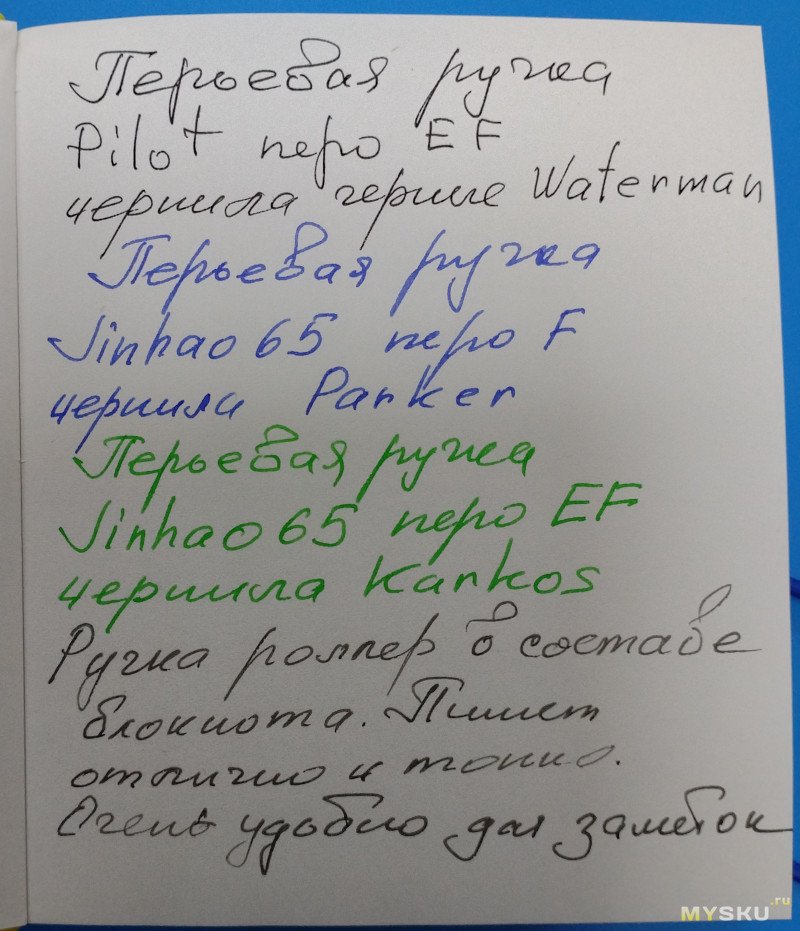 Перьевая ручка
Pilot перо EF
чернила черные Waterman
Перьевая ручка
Jinhao 65 перо F
чернила Parker
Перьевая ручка
Jinhao 65 перо EF
чернила Kankos
Ручка роллер в составе
блокнота. Пишет
отлично и тонко.
Очень удобно для заметок
MYSKU.ru